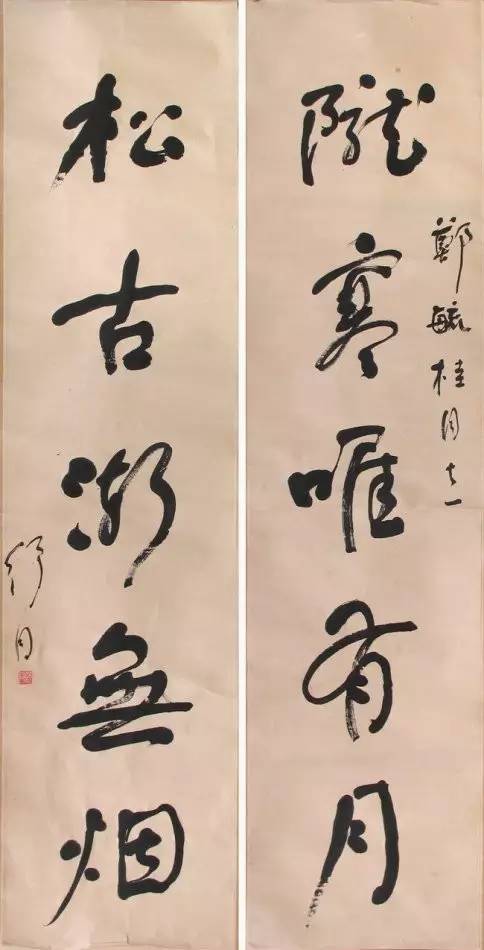 鄭毓桂同志
隴寒唯有月
松古漸無烟
舒同